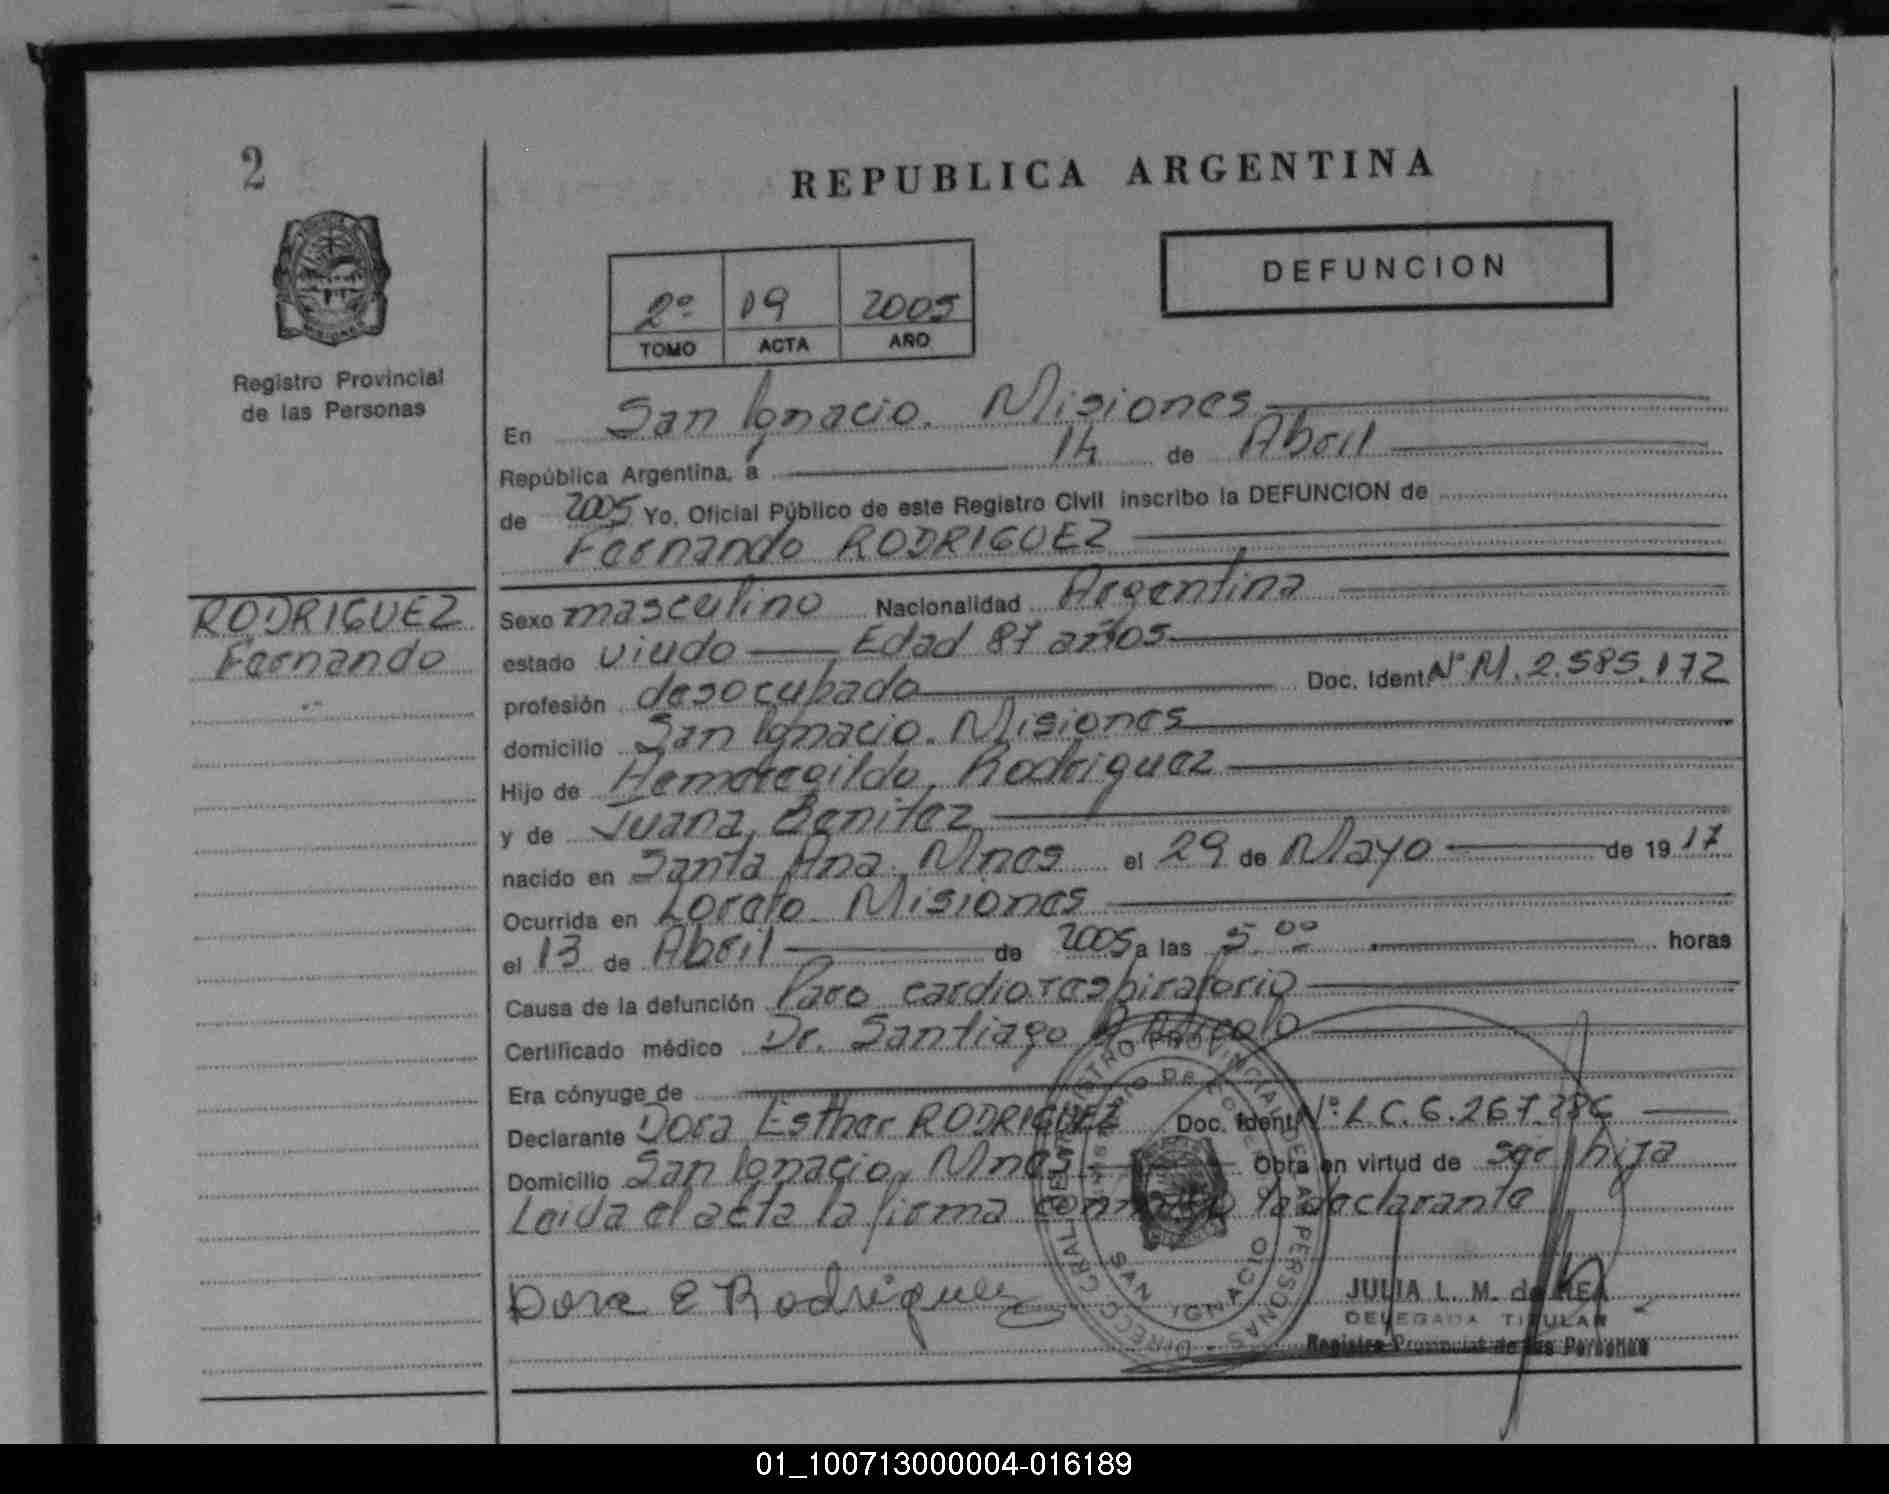 2
REPUBLICA ARGENTINA
DEFUNCION
2º 09 2005
TOMO ACTA AÑO
Registro Provincial
de las Personas
En San Ignacio. Misiones
República Argentina, a 14 de Abril
de 2005 Yo, Oficial Público de este Registro Civil inscribo la DEFUNCION de
Fernando RODRIGUEZ
RODRIGUEZ
Fernando
Sexo masculino Nacionalidad Argentina
estado viudo Edad 87 años
profesión desocupado Doc. Ident. Nº M. 2.585.172
domicilio San Ignacio. Misiones
Hijo de Hemeregildo Rodriguez
y de Juana Benitez
nacido en Santa Ana. Mnes el 29 de Mayo de 1917
Ocurrida en Loreto Misiones
el 13 de Abril de 2005 a las 5.00 horas
Causa de la defunción Paro cardiorespiratorio
Certificado médico Dr. Santiago
Era cónyuge de
Declarante Dora Esther RODRIGUEZ Doc. Ident. Nº: L.C. 6.267.
Domicilio San Ignacio, Mnes Obra en virtud de ser hija
Leida el acta la firma conmigo la declarante
Dora E Rodriguez
REGISTRO PROVINCIAL DE LAS PERSONAS
MINISTERIO DE
SAN IGNACIO
JULIA L. M. de
DELEGADA TITULAR
Registro Provincial de las Personas
01_100713000004-016189